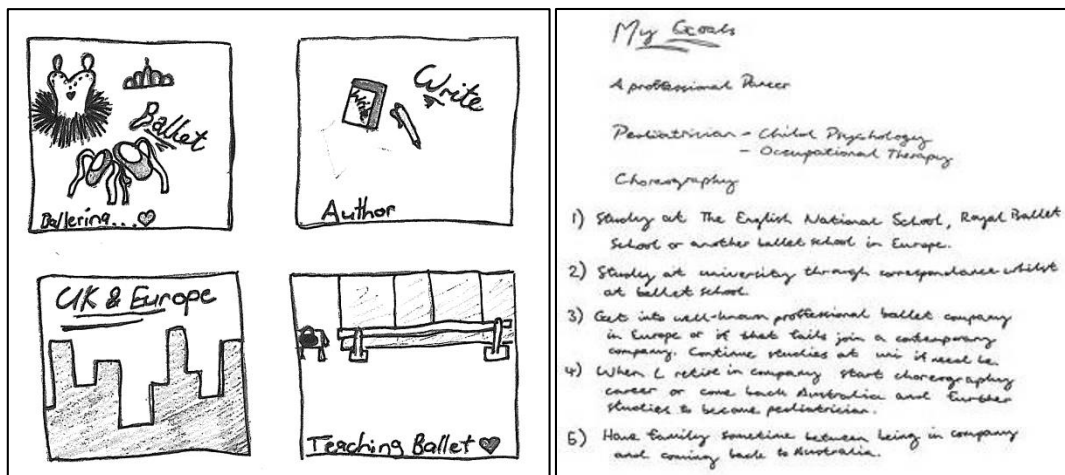 Ballet
Ballerina...
Write
Author
UK & Europe
Teaching Ballet
My Goals
A proffessional Dancer
Pediatrician - Child Psychology
- Occupational Therapy
Choreography
1) Study at The English National School, Royal Ballet
School or another ballet school in Europe.
2) Study at university through correspondance whilst
at ballet school.
3) Get into well-known proffessional ballet company
in Europe or if that fails join a contemporary
company. Continue studies at uni if need be.
4) When I retire in company start choreography
career or come back Australia and further
studies to become pediatrician.
5) Have family sometime between being in company
and coming back to Australia.